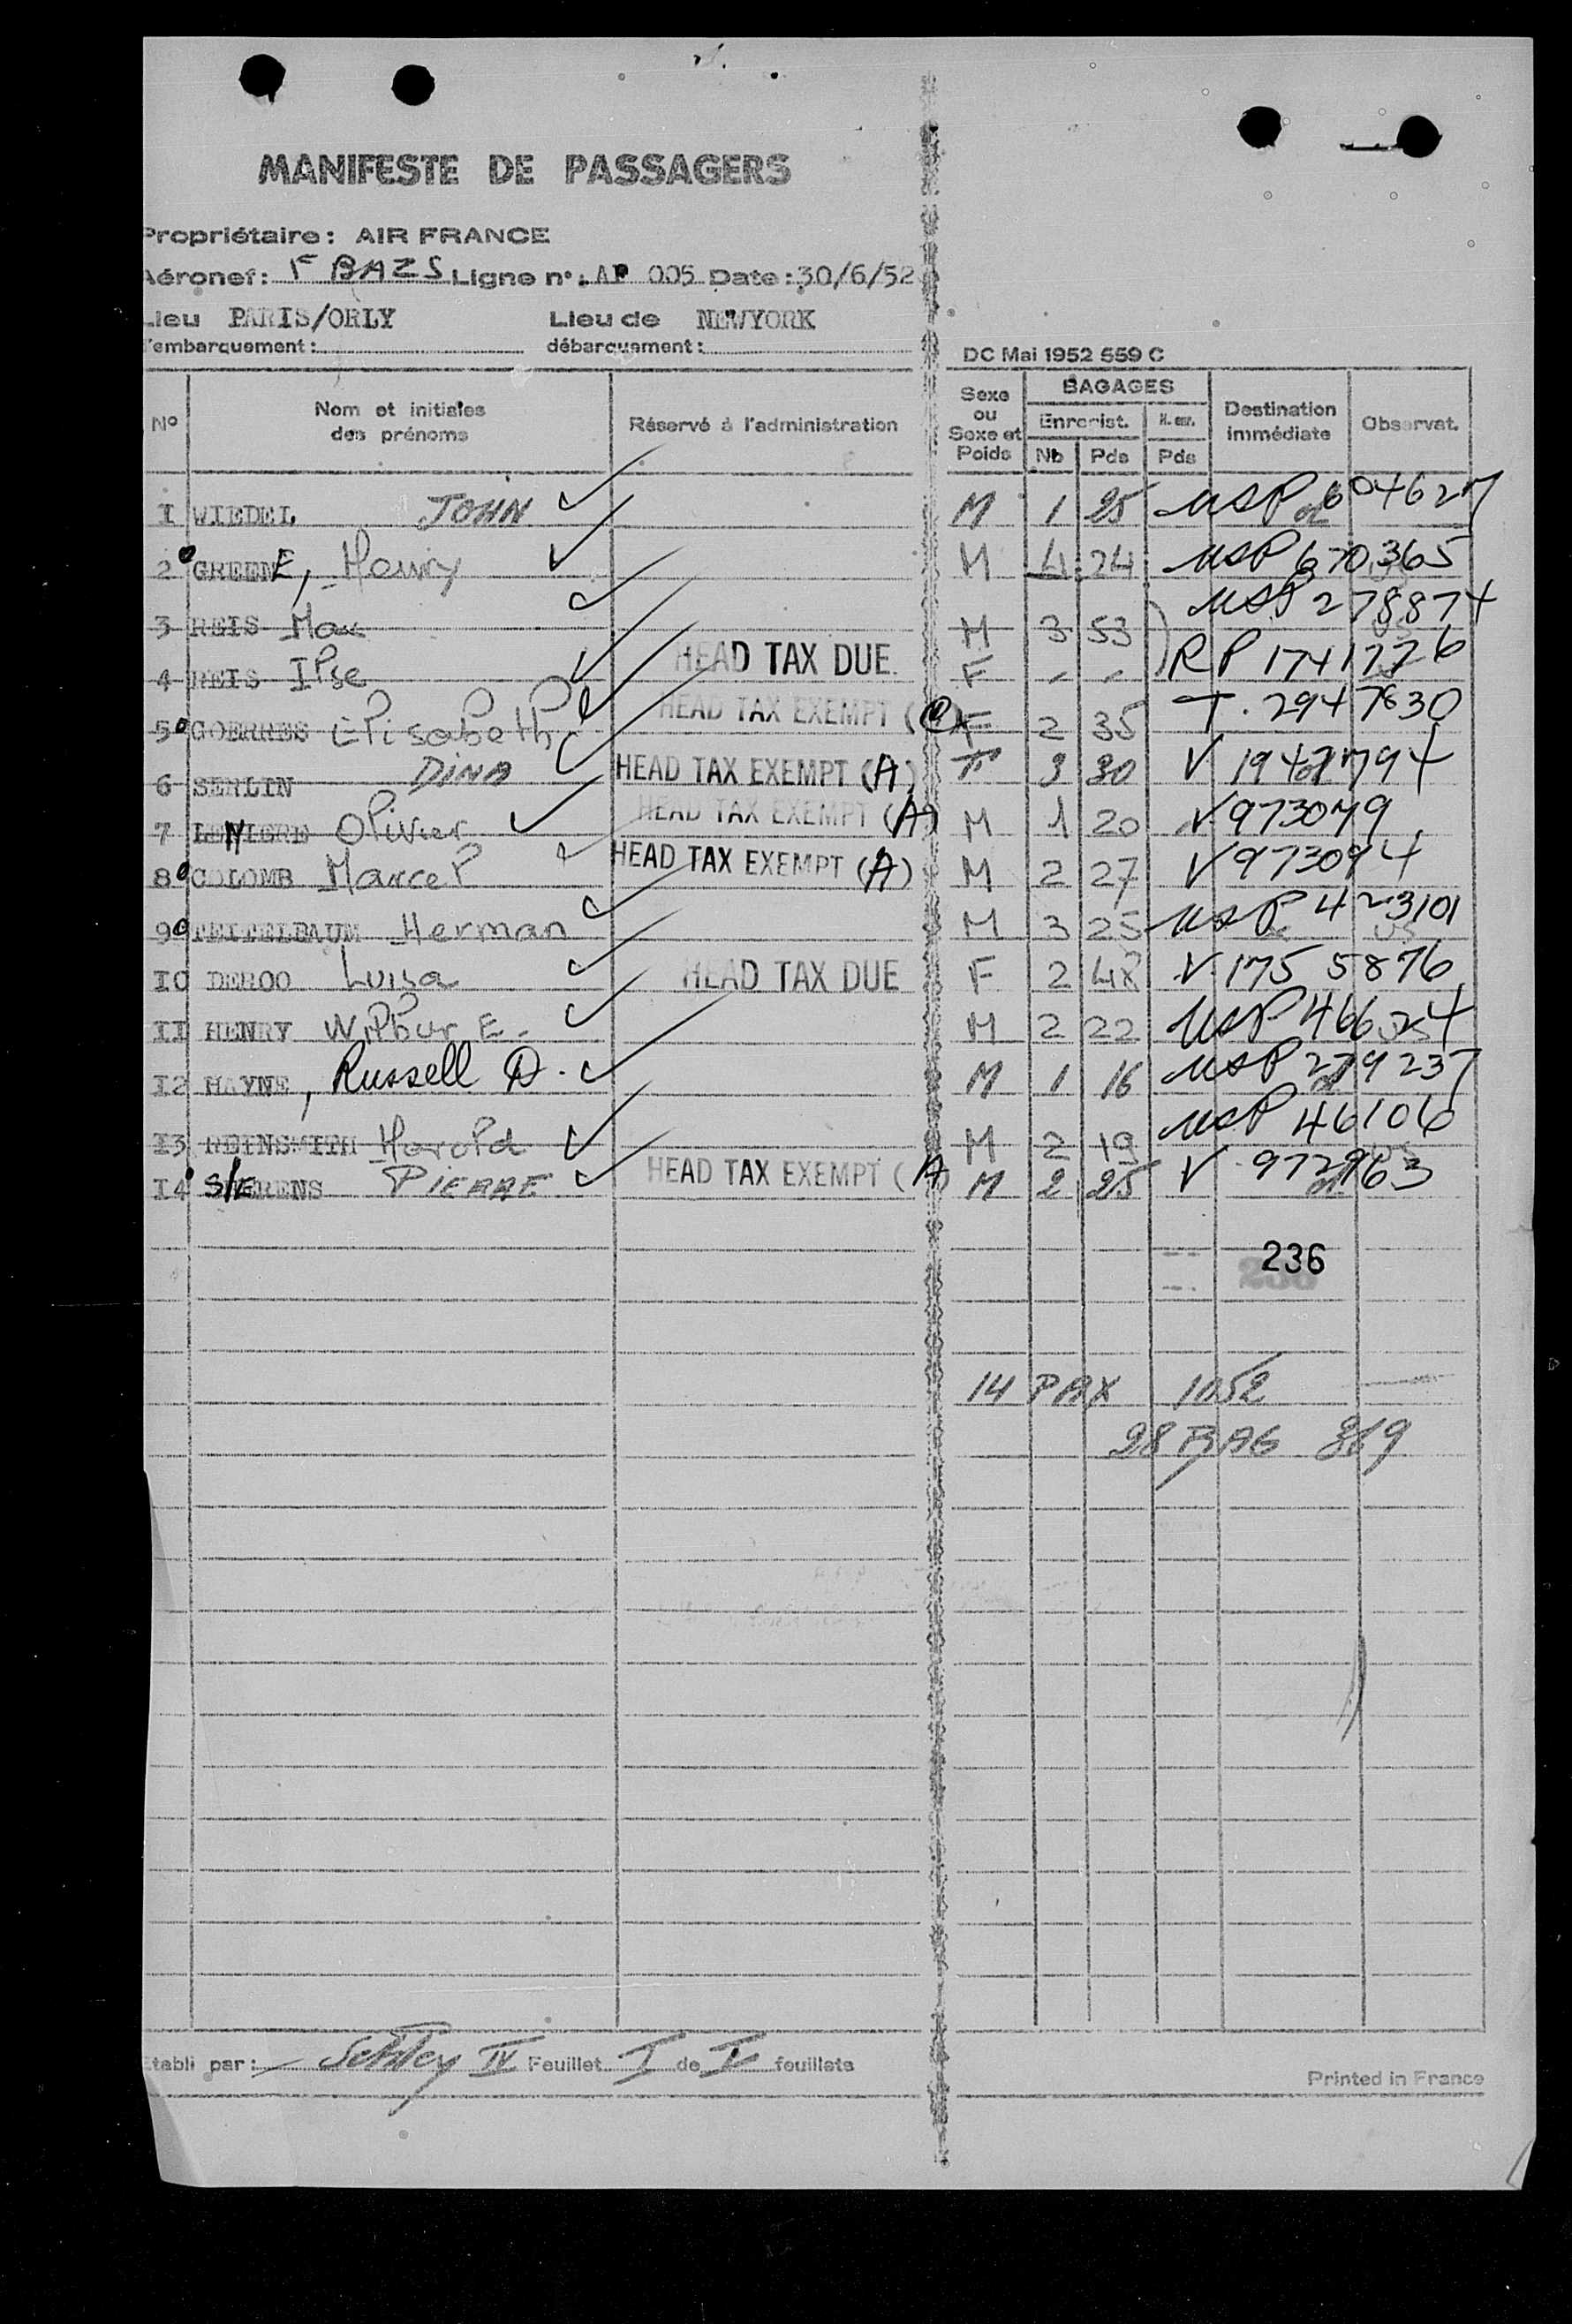 MANIFESTE DE PASSAGERS
Propriétaire : AIR FRANCE
Aéronef : F BAZS Ligne n° : AF 005 Date : 30/6/52
Lieu d'embarquement : PARIS/ORLY Lieu de débarquement : NEWYORK
DC Mai 1952 559 C
N° Nom et initiales des prénoms Réservé à l'administration Sexe ou Sexe et Poids BAGAGES Enregist. Nb Pds Pds Destination immédiate Observat.
1 WIEDEL JOHN M 1 25 USP 604627
2 GREENE, Henry M 4 24 USP 670365
3 REIS Max M 3 53 USP 278874
4 REIS Ilse HEAD TAX DUE F - - RP 1741776
5 GOERRES Elisabeth HEAD TAX EXEMPT (C) F 2 35 T. 2947830
6 SERLIN DINA HEAD TAX EXEMPT (A) F 3 30 V 1947794
7 Olivier HEAD TAX EXEMPT (A) M 1 20 V 973079
8 COLOMB Marcel HEAD TAX EXEMPT (A) M 2 27 V 973094
9 TEITELBAUM Herman M 3 25 USP 423101 US
10 DEROO Luisa HEAD TAX DUE F 2 48 V 175 5876
11 HENRY Wilbur E. M 2 22 USP 46624 US
12 HAYNE, Russell D. M 1 16 USP 279237
13 REINSMITH Harold M 2 19 USP 46106 US
14 SIERENS PIERRE HEAD TAX EXEMPT (A) M 2 25 V 972963
236
14 PAX 1052
28 BAG 369
Etabli par : Feuillet I de V feuillets
Printed in France